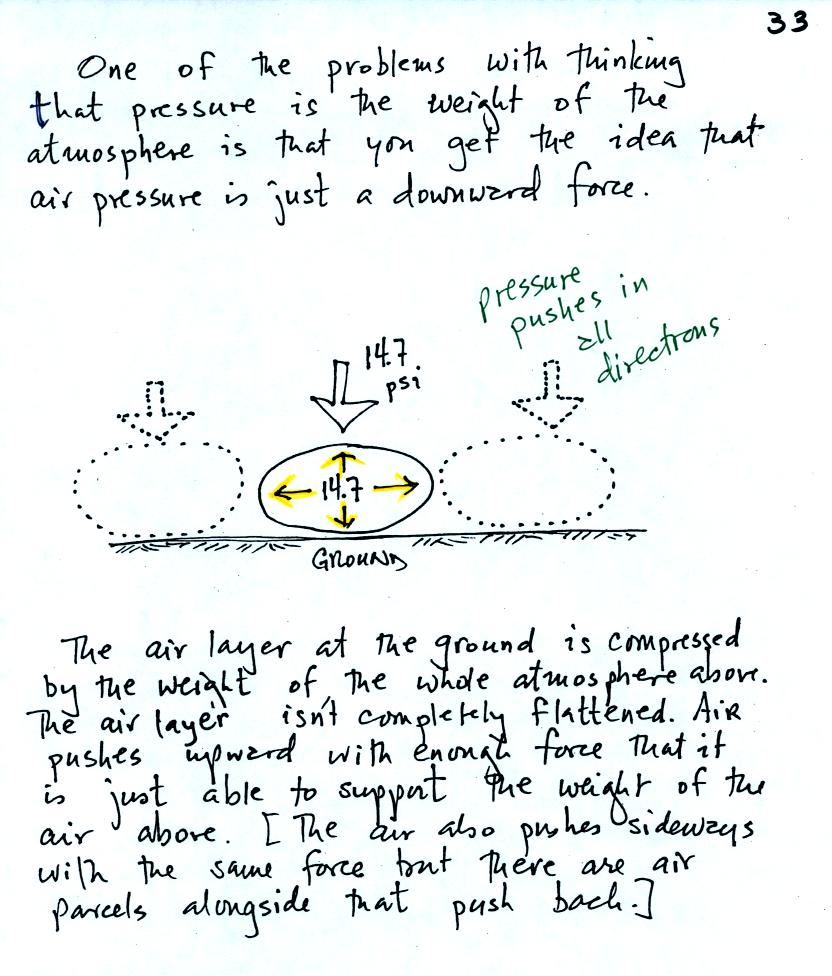 33
One of the problems with thinking
that pressure is the weight of the
atmosphere is that you get the idea that
air pressure is just a downward force.
pressure
pushes in
all
directions
14.7
psi
14.7
GROUND
The air layer at the ground is compressed
by the weight of the whole atmosphere above.
The air layer isn't completely flattened. AIR
pushes upward with enough force that it
is just able to support the weight of the
air above. [The air also pushes sideways
with the same force but there are air
parcels alongside that push back.]